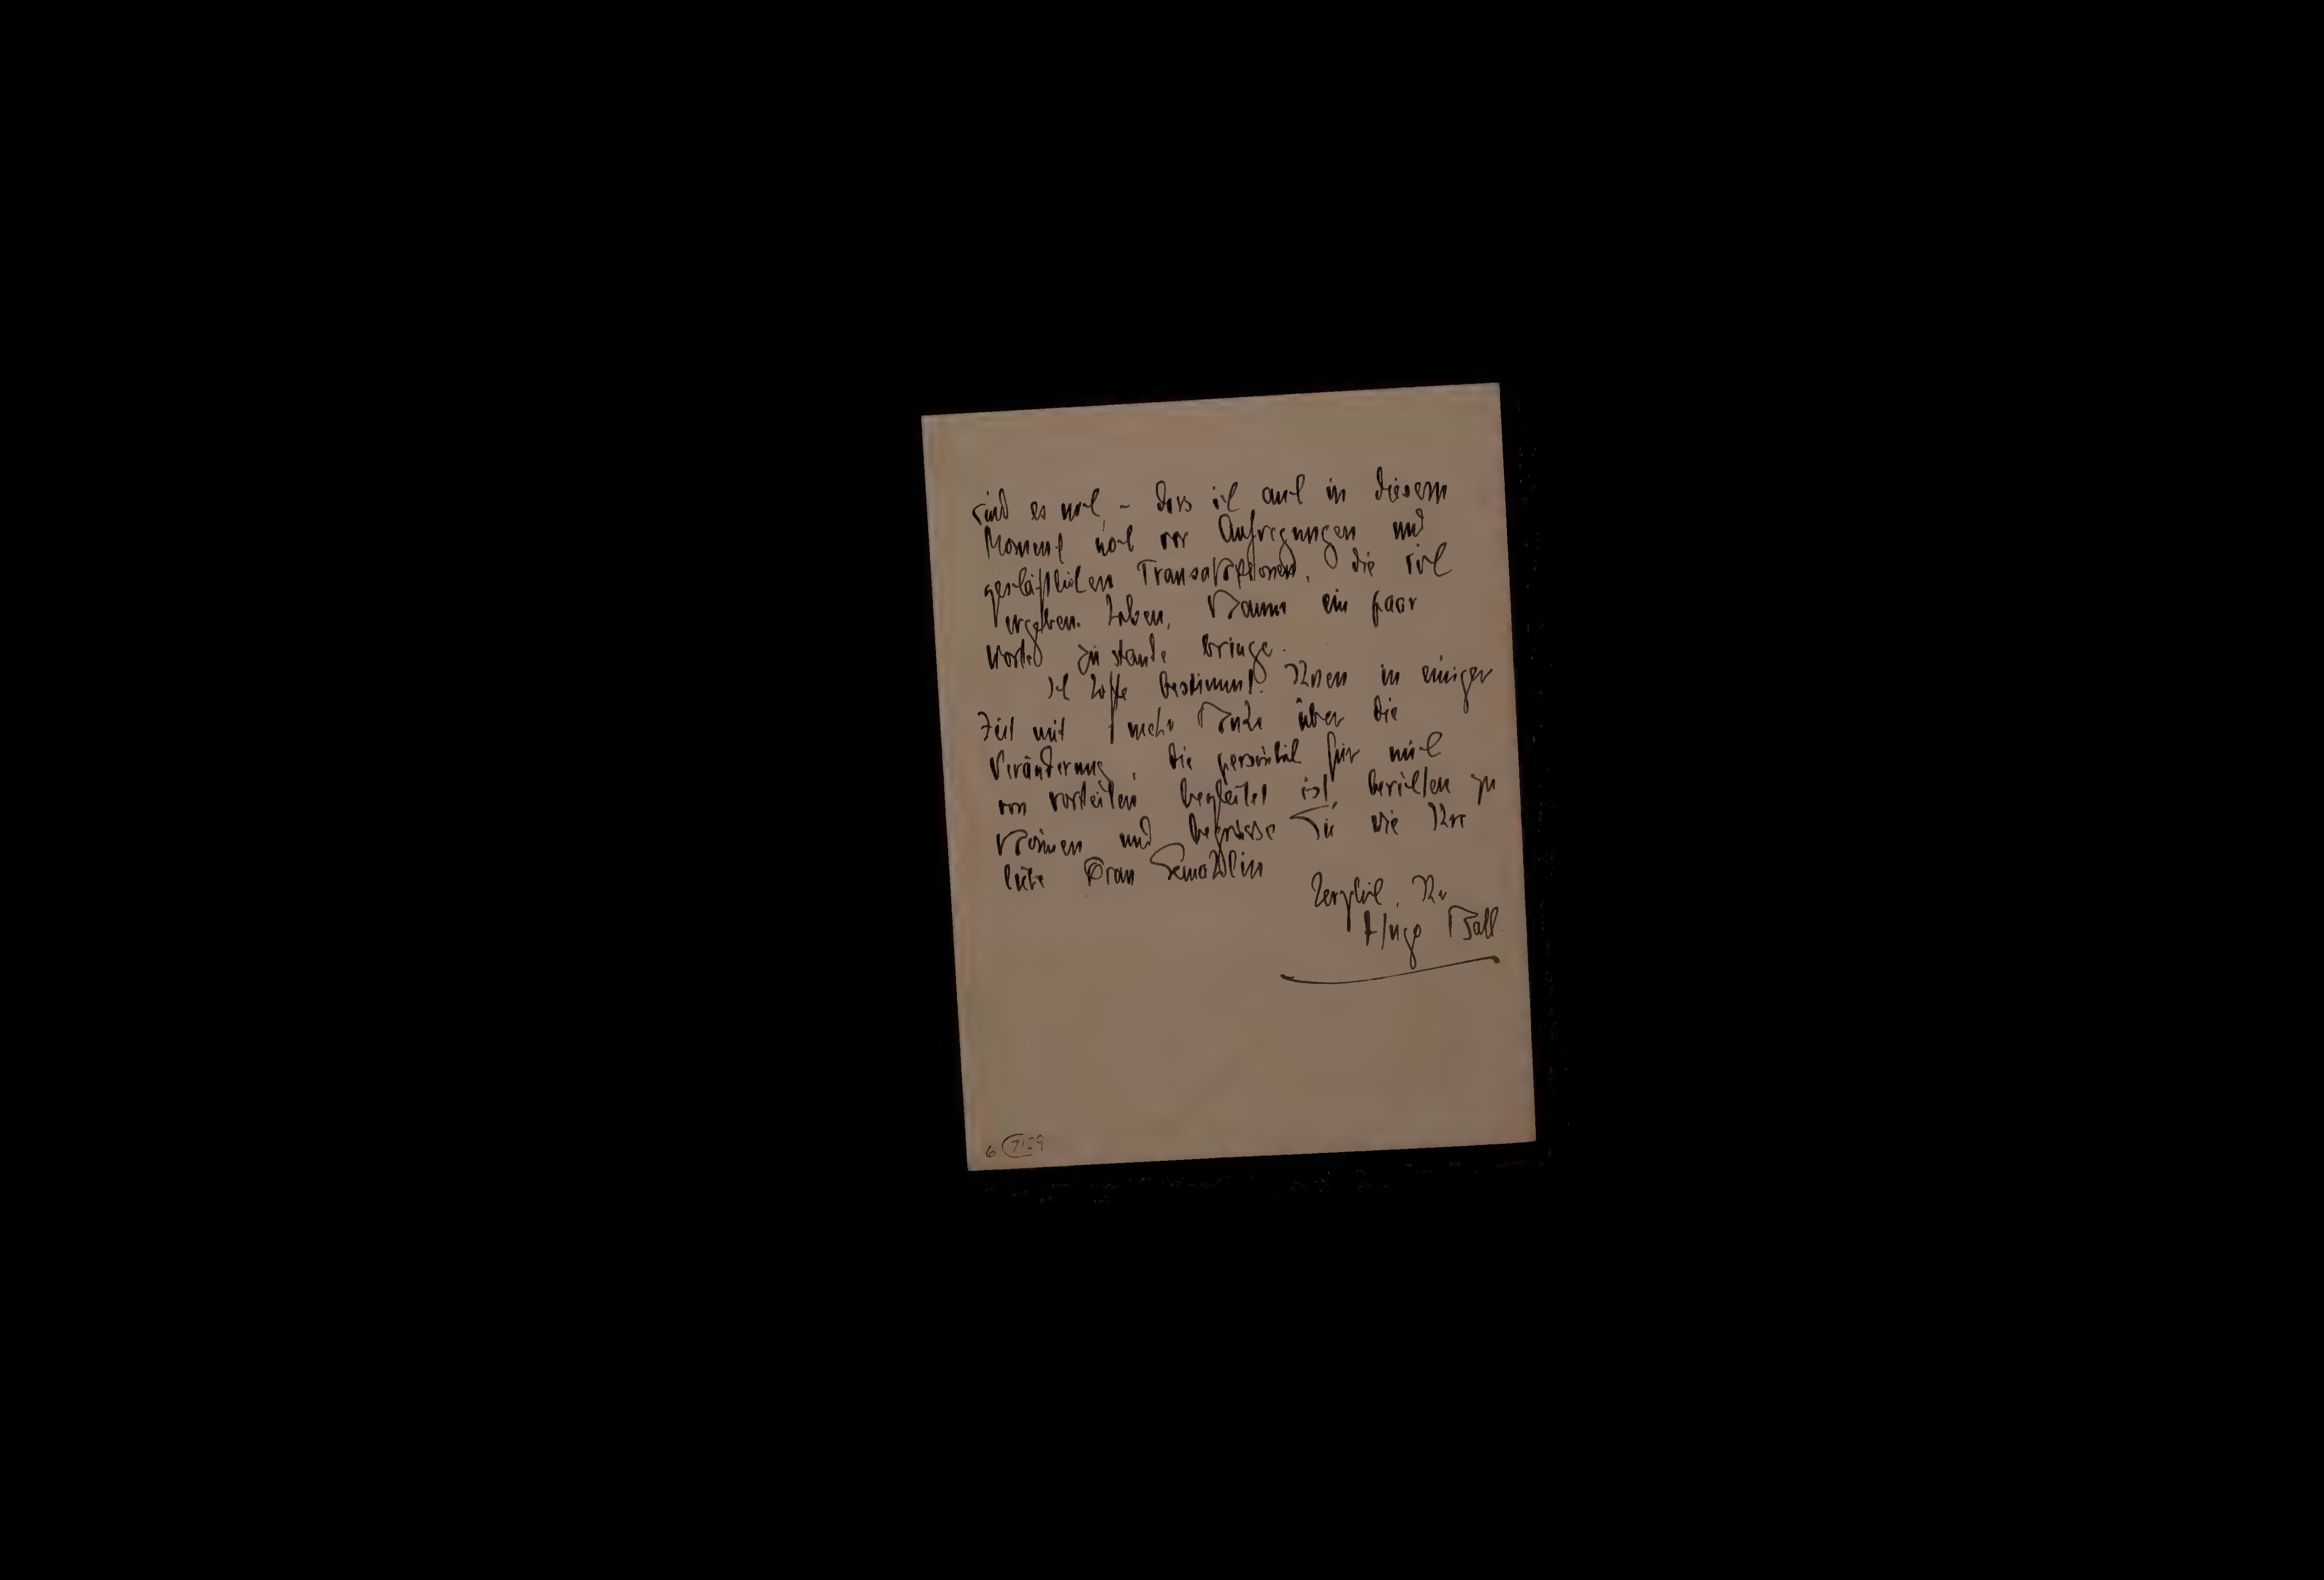 sind es noch, – dass ich auch in diesem
Moment noch vor Aufregungen und
geschäftlichen Transaktionen, die sich
ergeben haben, kaum ein paar
Worte zu stande bringe.
Ich hoffe bestimmt, Ihnen in einiger
Zeit mit mehr Ruhe über die
Veränderung, die persönlich für mich
von Vorteilen begleitet ist, berichten zu
können und begrüsse Sie wie Ihre
liebe Frau Gemahlin
herzlich, Ihr
Hugo Ball.
6